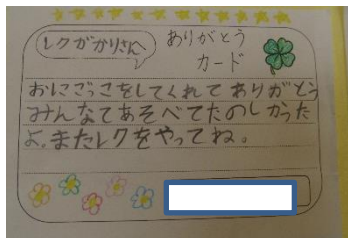 レクがかりさんへ
ありがとう
カード
おにごっこをしてくれてありがとう
みんなであそべてたのしかった
よ。またレクをやってね。